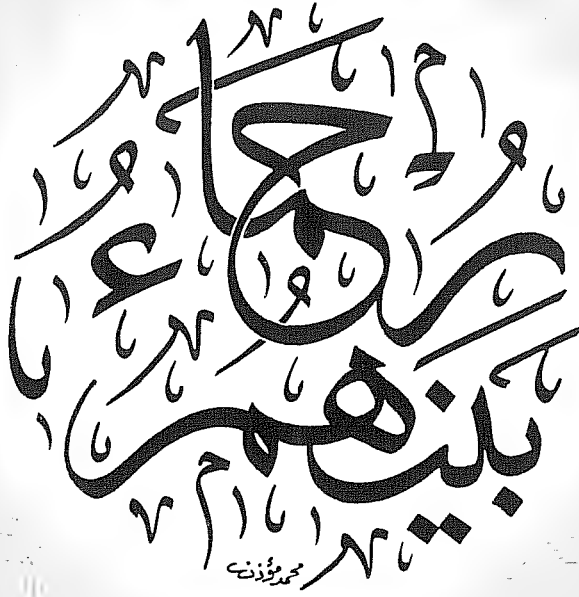 رُحَمَاءُ
بَيْنَهُمْ
محمد مؤذن